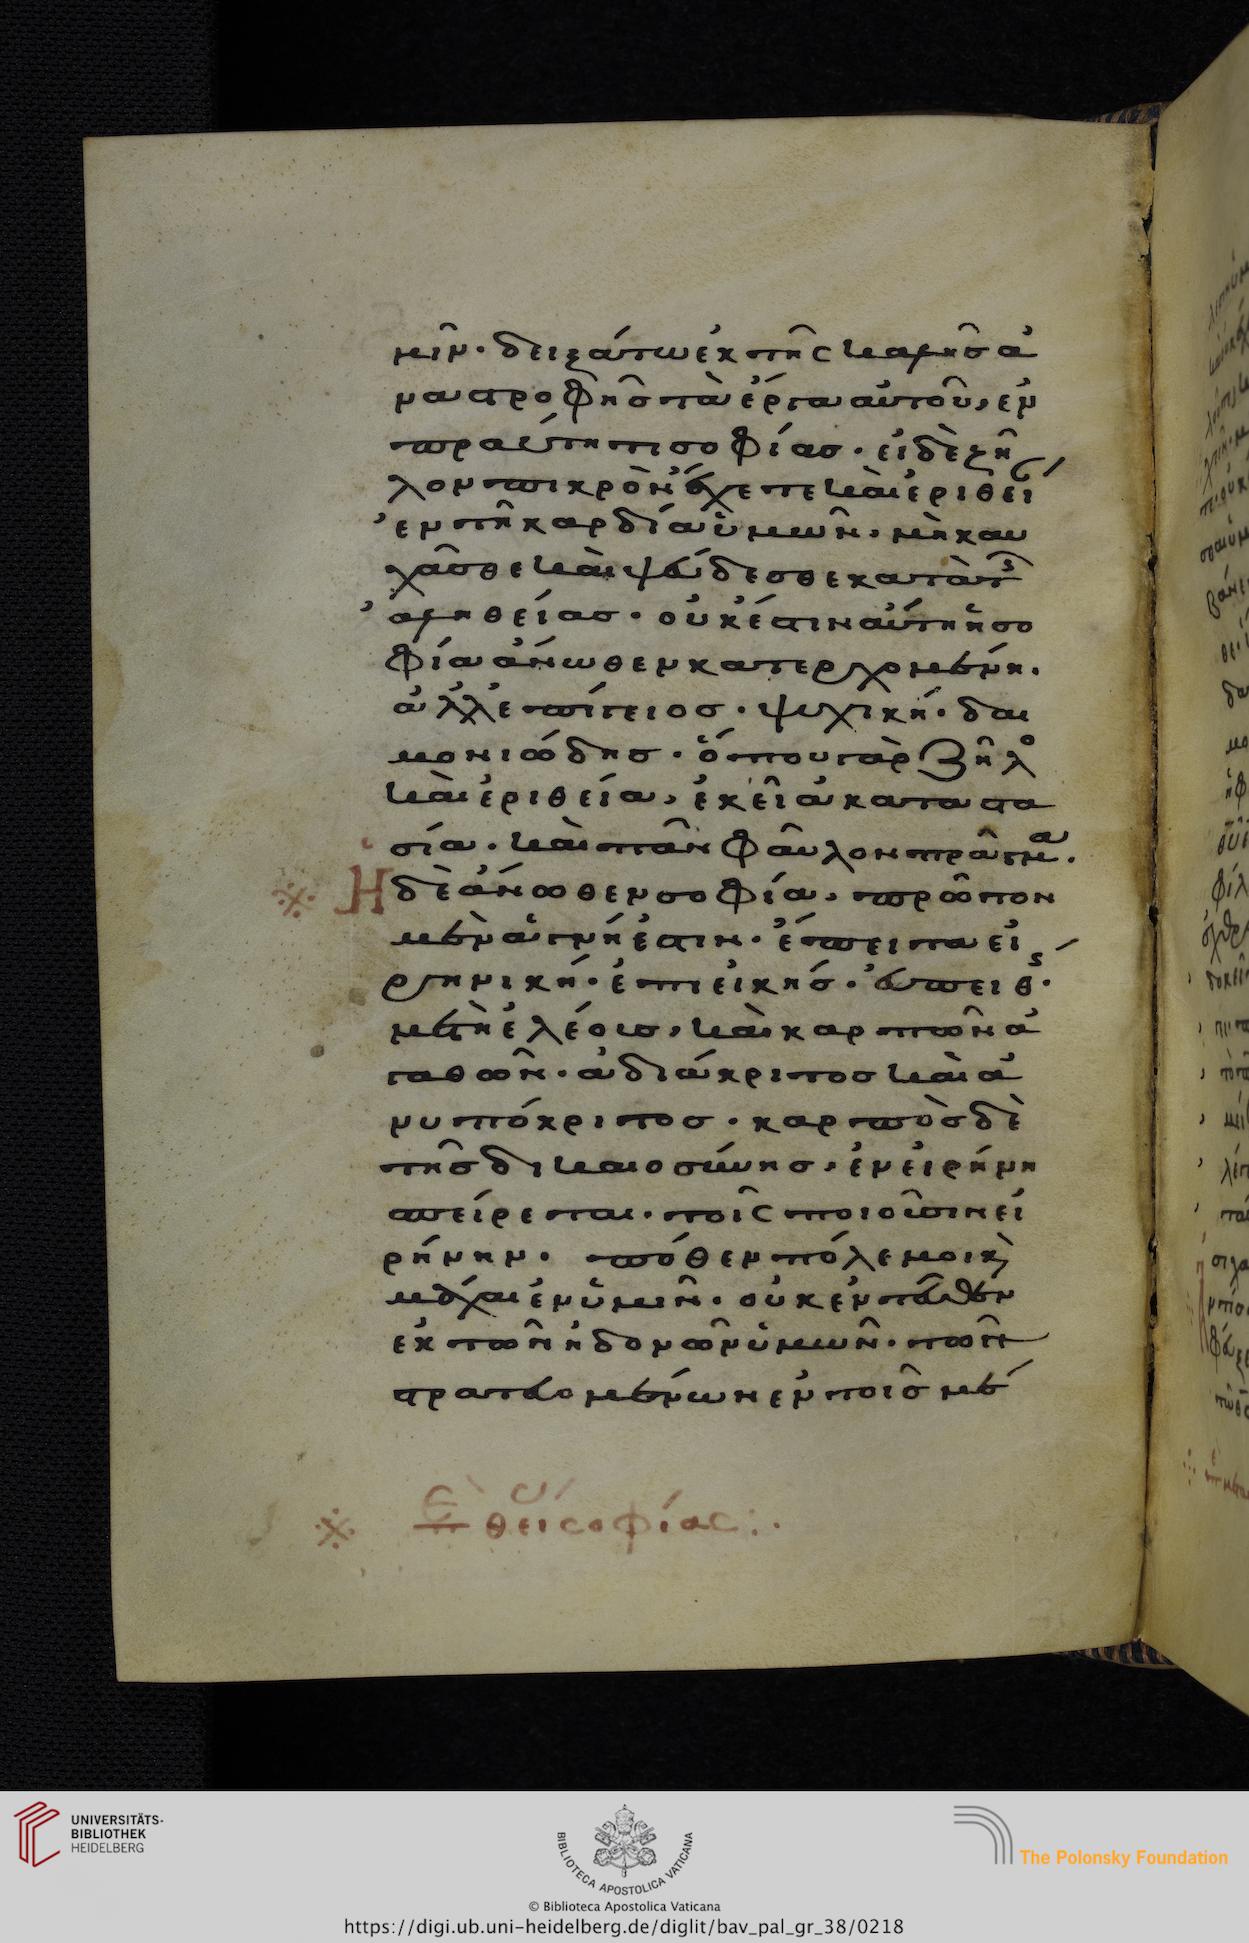 μῖν· δειξάτω ἐκ τῆς καλῆς ἀ
ναστροφῆς τὰ ἔργα αὐτοῦ, ἐν
πραΰτητι σοφίας· εἰ δὲ ζῆ
λον πικρὸν ἔχετε καὶ ἐριθεί
ἐν τῇ καρδία ὑμῶν, μὴ καυ
χᾶσθε καὶ ψεύδεσθε κατὰ τ
ἀληθείας· οὐκ ἔστιν αὕτη ἡ σο
φία ἄνωθεν κατερχομένη.
ἀλλ' ἐπίγειος· ψυχική· δαι
μονιώδης· ὅπου γὰρ ζῆλο
καὶ ἐριθεία, ἐκεῖ ἀκαταστα
σία· καὶ πᾶν φαῦλον πρᾶγμα.
Ἡ δὲ ἄνωθεν σοφία, πρῶτον
μὲν ἁγνή ἐστιν· ἔπειτα εἰ
ρηνική· ἐπιεικής· εὐπειθ·
μεστὴ ἐλέους, καὶ καρπῶν ἀ
γαθῶν· ἀδιάκριτος καὶ ἀ
νυπόκριτος· καρπὸς δὲ
τῆς δικαιοσύνης, ἐν εἰρήνη
σπείρεται· τοῖς ποιοῦσιν εἰ
ρήνην· πόθεν πόλεμοι κ
μάχαι ἐν ὑμῖν· οὐκ ἐντεῦθεν
ἐκ τῶν ἡδονῶν ὑμῶν· τῶν
στρατευομένων ἐν τοῖς μέ
θείς σοφίας:·
UNIVERSITÄTS-
BIBLIOTHEK
HEIDELBERG
BIBLIOTECA APOSTOLICA VATICANA
The Polonsky Foundation
© Biblioteca Apostolica Vaticana
https://digi.ub.uni-heidelberg.de/diglit/bav_pal_gr_38/0218